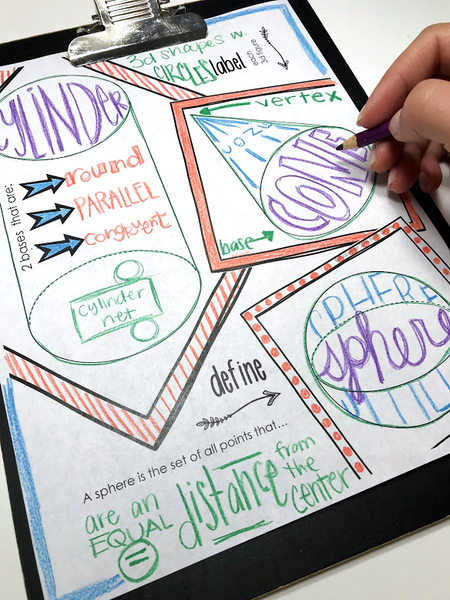 3d shapes w.
CIRCLES label
each
3d figure
CYLINDER
2 bases that are:
round
PARALLEL
congruent
cylinder
net
vertex
CONE
CONE
base
SPHERE
sphere
define
A sphere is the set of all points that...
are an
EQUAL
=
distance
from
the
center